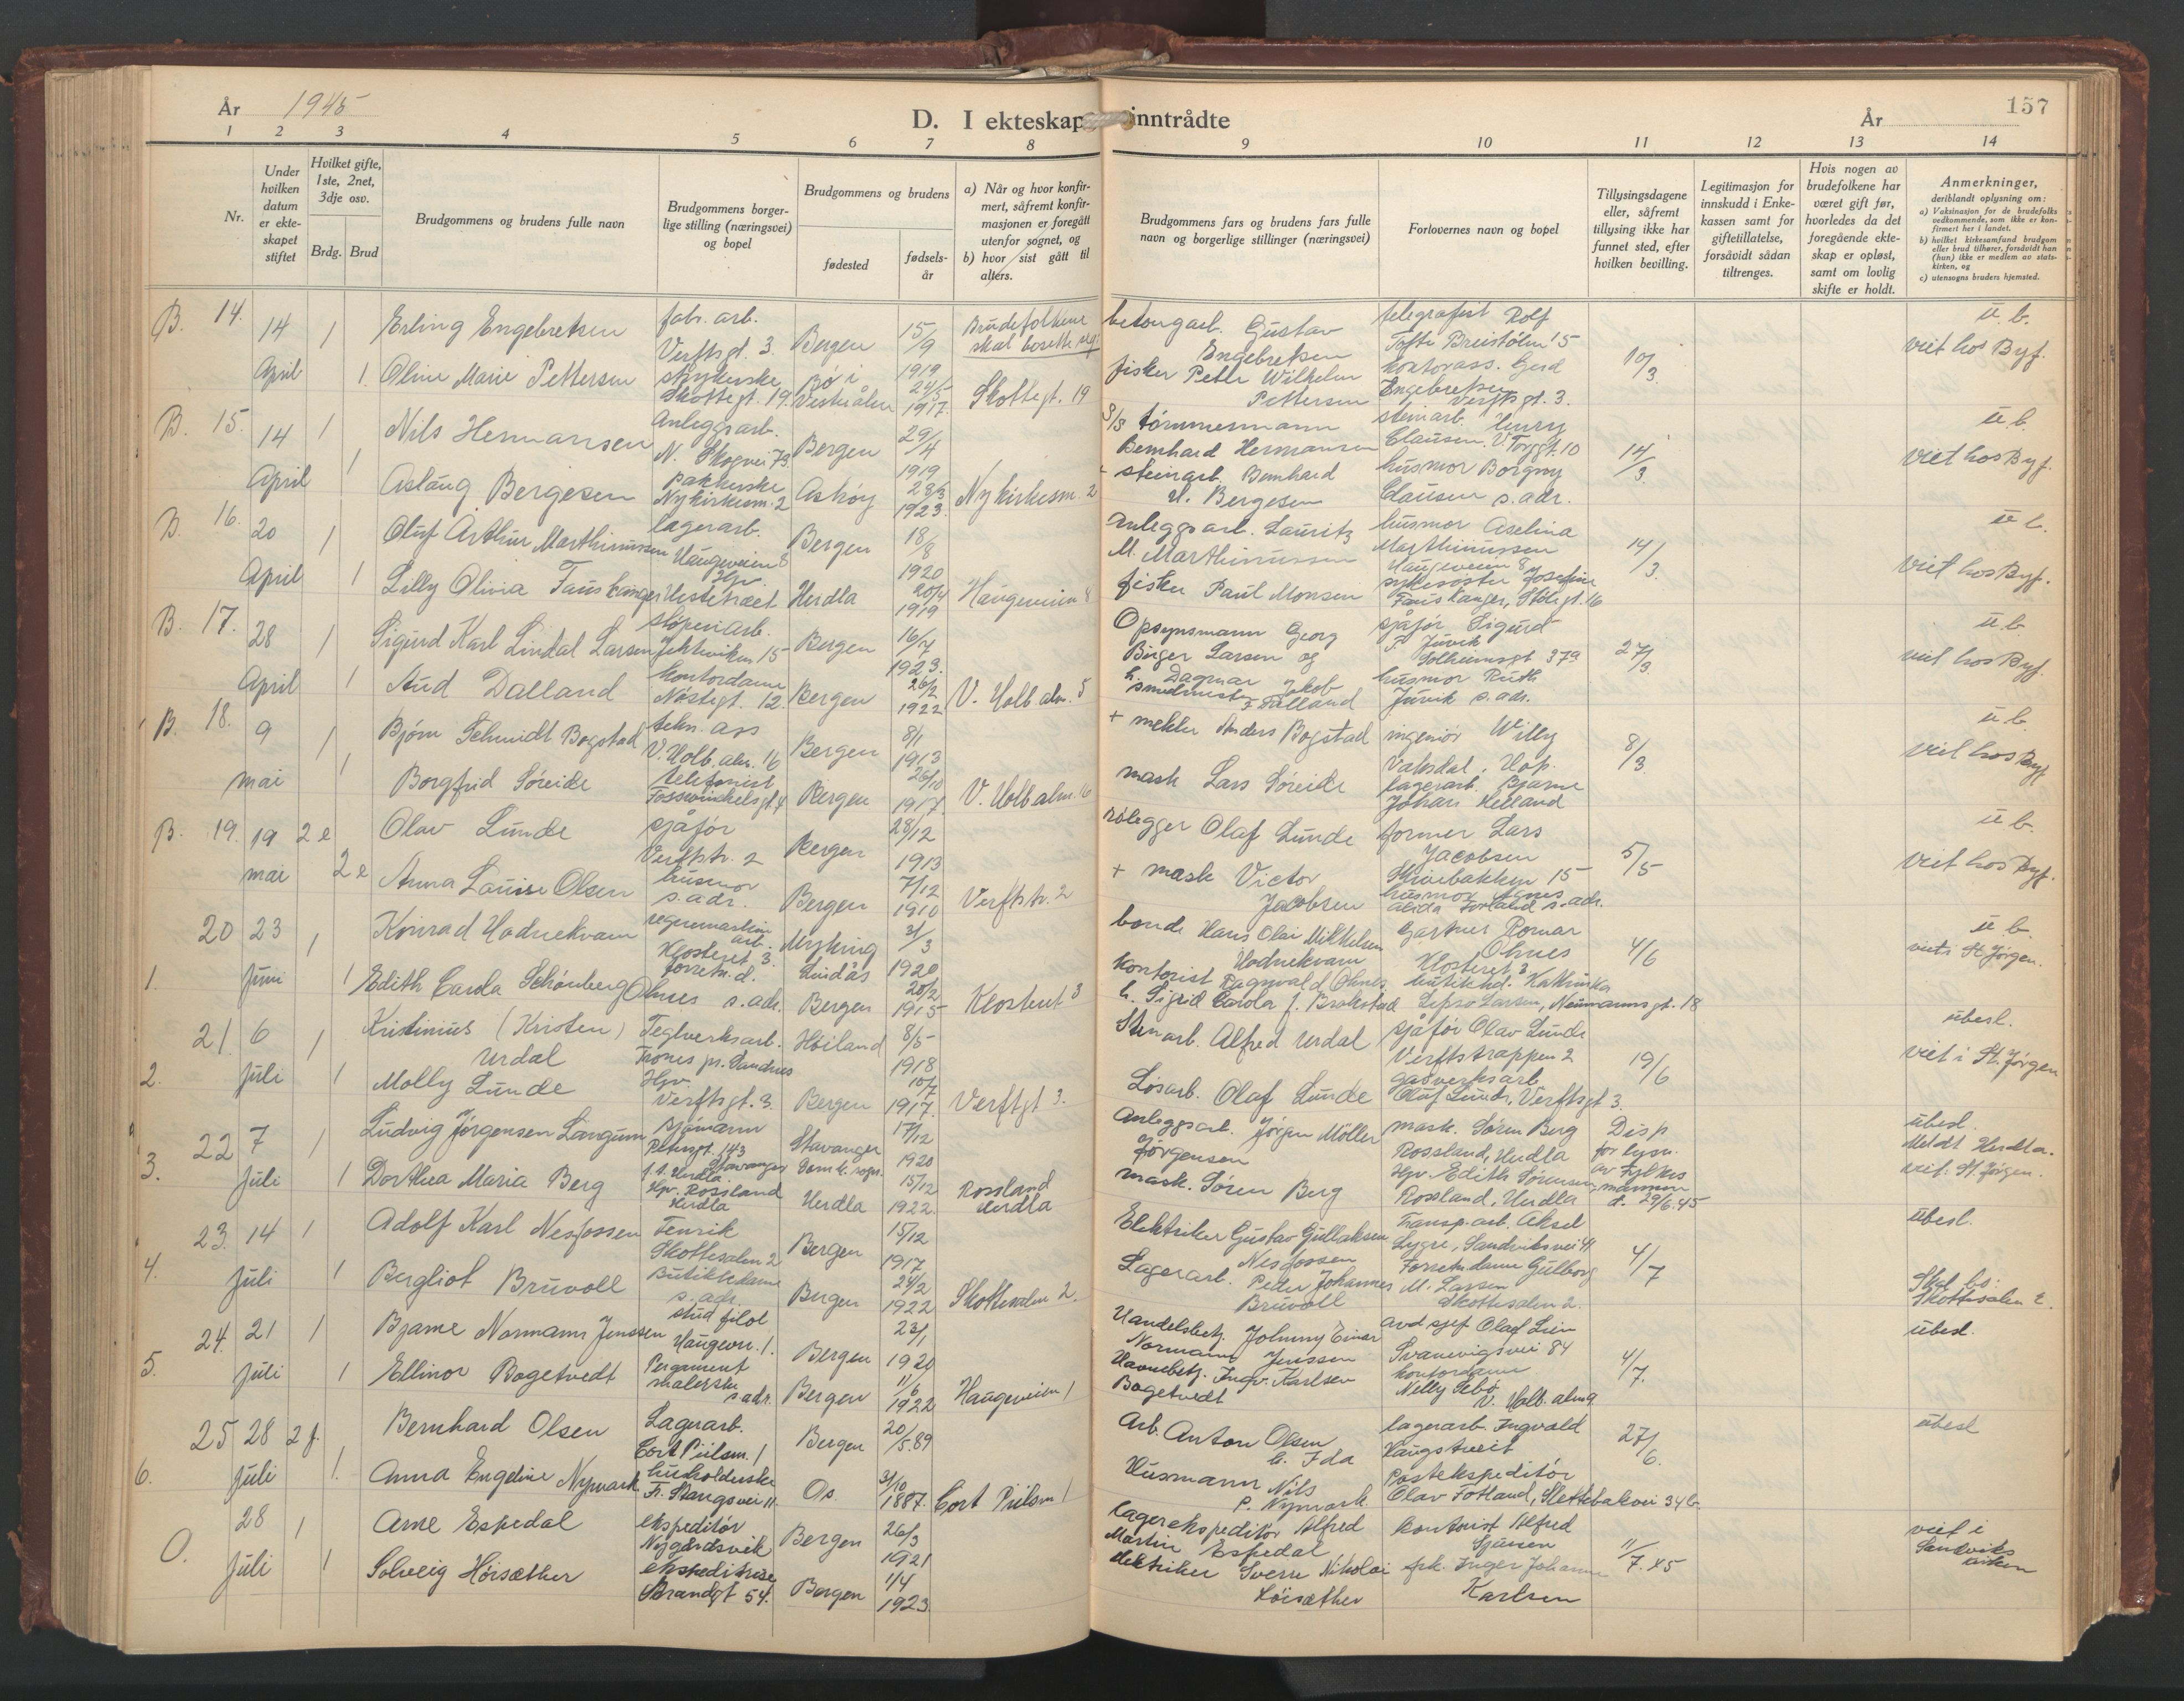 År 1945
D. I ekteskap inntrådte
År
157
1 2 3 4 5 6 7 8 9 10 11 12 13 14
Nr.
Under hvilken datum er ekteskapet stiftet
Hvilket gifte, 1ste, 2net, 3dje osv.
Brdg. Brud
Brudgommens og brudens fulle navn
Brudgommens borgerlige stilling (næringsvei) og bopel
Brudgommens og brudens
fødested
fødselsår
a) Når og hvor konfirmert, såfremt konfirmasjonen er foregått utenfor sognet, og
b) hvor sist gått til alters.
Brudgommens fars og brudens fars fulle navn og borgerlige stillinger (næringsvei)
Forlovernes navn og bopel
Tillysingsdagene eller, såfremt tillysing ikke har funnet sted, efter hvilken bevilling.
Legitimasjon for innskudd i Enkekassen samt for giftetillatelse, forsåvidt sådan tiltrenges.
Hvis nogen av brudefolkene har været gift før, hvorledes da det foregående ekteskap er opløst, samt om lovlig skifte er holdt.
Anmerkninger, deriblandt oplysning om:
a) Vaksinasjon for de brudefolks vedkommende, som ikke er konfirmert her i landet.
b) hvilket kirkesamfund brudgom eller brud tilhører, forsåvidt han (hun) ikke er medlem av statskirken, og
c) utensogns bruders hjemsted.
B. 14. 14 April 1 Erling Engebretsen fabr. arb. Verftsgt. 3. Bergen 15/9 1919 Brudefolkene skal bosette seg:
betongarb. Gustav Engebretsen telegrafist Rolf Tofte Breistølen 15 10/3 u. b.
1. Oline Marie Pettersen strykerske Skottegt. 19. Bø i Vesterålen 24/5 1917 Skottegt. 19
fisker Peder Wilhelm Pettersen kontorass. Gerd Engebretsen Verftsgt. 3. viet hos Byf.
B. 15. 14 April 1 Nils Hermansen Anleggsarb. N. Skogvei 73. Bergen 29/4 1919
tømmermann Bernhard Hermansen steinarb. Henry Clausen V. Torggt. 10 14/3 u. b.
1 Aslaug Bergesen pakkerske Nykirkesm. 2 Askøy 28/3 1923 Nykirkesm. 2
steinarb. Bernhard H. Bergesen husmor Borgny Clausen s. adr. viet hos Byf.
B. 16. 20 April 1 Oluf Arthur Marthinussen lagerarb. Haugeveien 8 Bergen 18/8 1920
Anleggsarb. Lauritz M. Marthinussen husmor Aselina Marthinussen Haugeveien 8 14/3 u. b.
1 Lilly Olivia Fauskanger Hpr. Herdla 20/4 1919 Haugeveien 8
fisker Paul Monsen sykesøster Josefine Fauskanger, Stølegt. 16 viet hos Byf.
B. 17. 28 April 1 Sigurd Karl Lindal Larsen støperiarb. Jekteviken 15 Bergen 16/7 1923.
Opsynsmann Georg Birger Larsen og h. Dagmar sjåfør Sigurd F. Juvik Solheimsgt 37a 27/3 u. b.
1 Aud Dalland kontordame Nøstegt. 12 Bergen 26/2 1922 V. Holb. alm. 5
Jakob F. Dalland husmor Ruth Juvik s. adr. viet hos Byf.
B. 18. 9 mai 1 Bjørn Schmidt Bogstad tekn. ass V. Holb. alm. 16 Bergen 8/1 1913
+ mekler Anders Bogstad ingeniør Willy Vaksdal, Hop. 8/3 u. b.
1 Borgfrid Søreide telefonist Fossevinkelsgt 4 Bergen 26/10 1917. V. Holb alm. 16
mask Lars Søreide lagerarb. Bjarne Johan Helland viet hos Byf.
B. 19. 19 mai 2 e Olav Lunde sjåfør Verftstr. 2 Bergen 28/12 1913
rølegger Olaf Lunde former Lars Jacobsen Skivebakken 15 5/5 u. b.
2 e Anna Louise Olsen husmor s. adr. Bergen 7/12 1910 Verftstr. 2
+ mask Victor Jacobsen husmor Agnes Alida Forland s. adr. viet hos Byf.
20 23 Juni 1 Konrad Hodnekvam arb. Klosteret 3. Myking Lindås 31/3 1920
bonde Hans Olai Mikkelsen Hodnekvam Gartner Romar Olnes Klosteret 3 4/6 u. b.
1. 1 Edith Carola Schønberg Olnes forretn. d. s. adr. Bergen 20/2 1915 Klosteret 3
kontorist Ragnvald Olnes h. Sigrid Carola f. Brakstad Larsen, Neumannsgt. 18 viet i St. Jørgen.
21. 6 Juli 1 Kristinius (Kristen) Urdal Teglverksarb. Trones pr. Sandnes Høiland 8/5 1918
Stenarb. Alfred Urdal sjåfør Olav Lunde Verftstrappen 2 19/6 ubesl.
2. 1 Molly Lunde Hpr. Verftsgt. 3. Bergen 10/7 1917. Verftgt 3.
Løsarb. Olaf Lunde gasverksarb Oluf Lunde, Verftsgt 3. viet i St. Jørgen
22 7 Juli 1 Ludvig Jørgensen Langum Sjømann Petersgt. 143 Stavanger Stavanger Domk. sogn. 17/12 1920
Anleggsarb. Jørgen Møller Jørgensen mask. Søren Berg Rossland, Herdla Disp for lysn. av Fylkesmannen d. 29/6. 45 ubesl. Meldt Herdla.
3. 1 Dorthea Maria Berg Hpr. Rossland Herdla Herdla 15/12 1922 Rossland Herdla
mask. Søren Berg Hpr. Edith Sørensen, Rossland, Herdla viet. St Jørgen.
23. 14 Juli 1 Adolf Karl Nesfossen Fenrik Skottesalen 2 Bergen 15/12 1917
Elektriker Gustav Gullaksen Nesfossen Transp. arb. Aksel Lygre, Sandviksvei 41 4/7 ubesl.
4. 1 Bergliot Bruvoll Butikkdame s. adr. Bergen 24/2 1922 Skottesalen 2.
Lagerarb. Peder Johannes Bruvoll Forretn. dame Gulborg M. Larsen Skottesalen 2. Skal bo: Skottesalen 2.
24. 21 Juli 1 Bjarne Normann Jenssen stud filol Haugevn. 1. Bergen 23/1 1920
Handelsbetj. Johnny Einar Normann Jenssen avd sjef Olaf Lien Svanevigsvei 84 4/7. ubesl.
5. 1 Ellinor Bogetvedt Pergament malerske s adr. Bergen 11/6 1922 Haugeveien 1
Havnebetj. Ingv. Karlsen Bogetvedt kontordame Nelly Sebø V. Holb. alm 9
25 28 Juli 2 f. Bernhard Olsen Lagerarb. Cort Piilsm. 1 Bergen 20/5 89
Arb. Anton Olsen h. Ida lagerarb. Ingvald Haugstveit 27/6. ubesl
6. 1. Anna Engeline Nymark husholderske Fr. Stangsvei 11 Os. 31/10 1887. Cort Piilsm 1
Husmann Nils P. Nymark Postekspeditør Olav Totland, Slettebakvei 34 b.
28 Juli 1 Arne Espedal ekspeditør Nygårdsvik Bergen 26/3 1921
Lagerekspeditør Alfred Martin Espedal kontorist Alfred 11/7. 45 viet i Sandvikskirken
O. 1 Solveig Høisæther ekspeditrise Strandgt 54. Bergen 1/4 1923
elektriker Sverre Nikolai Høisæther frk. Inger Johanne Karlsen